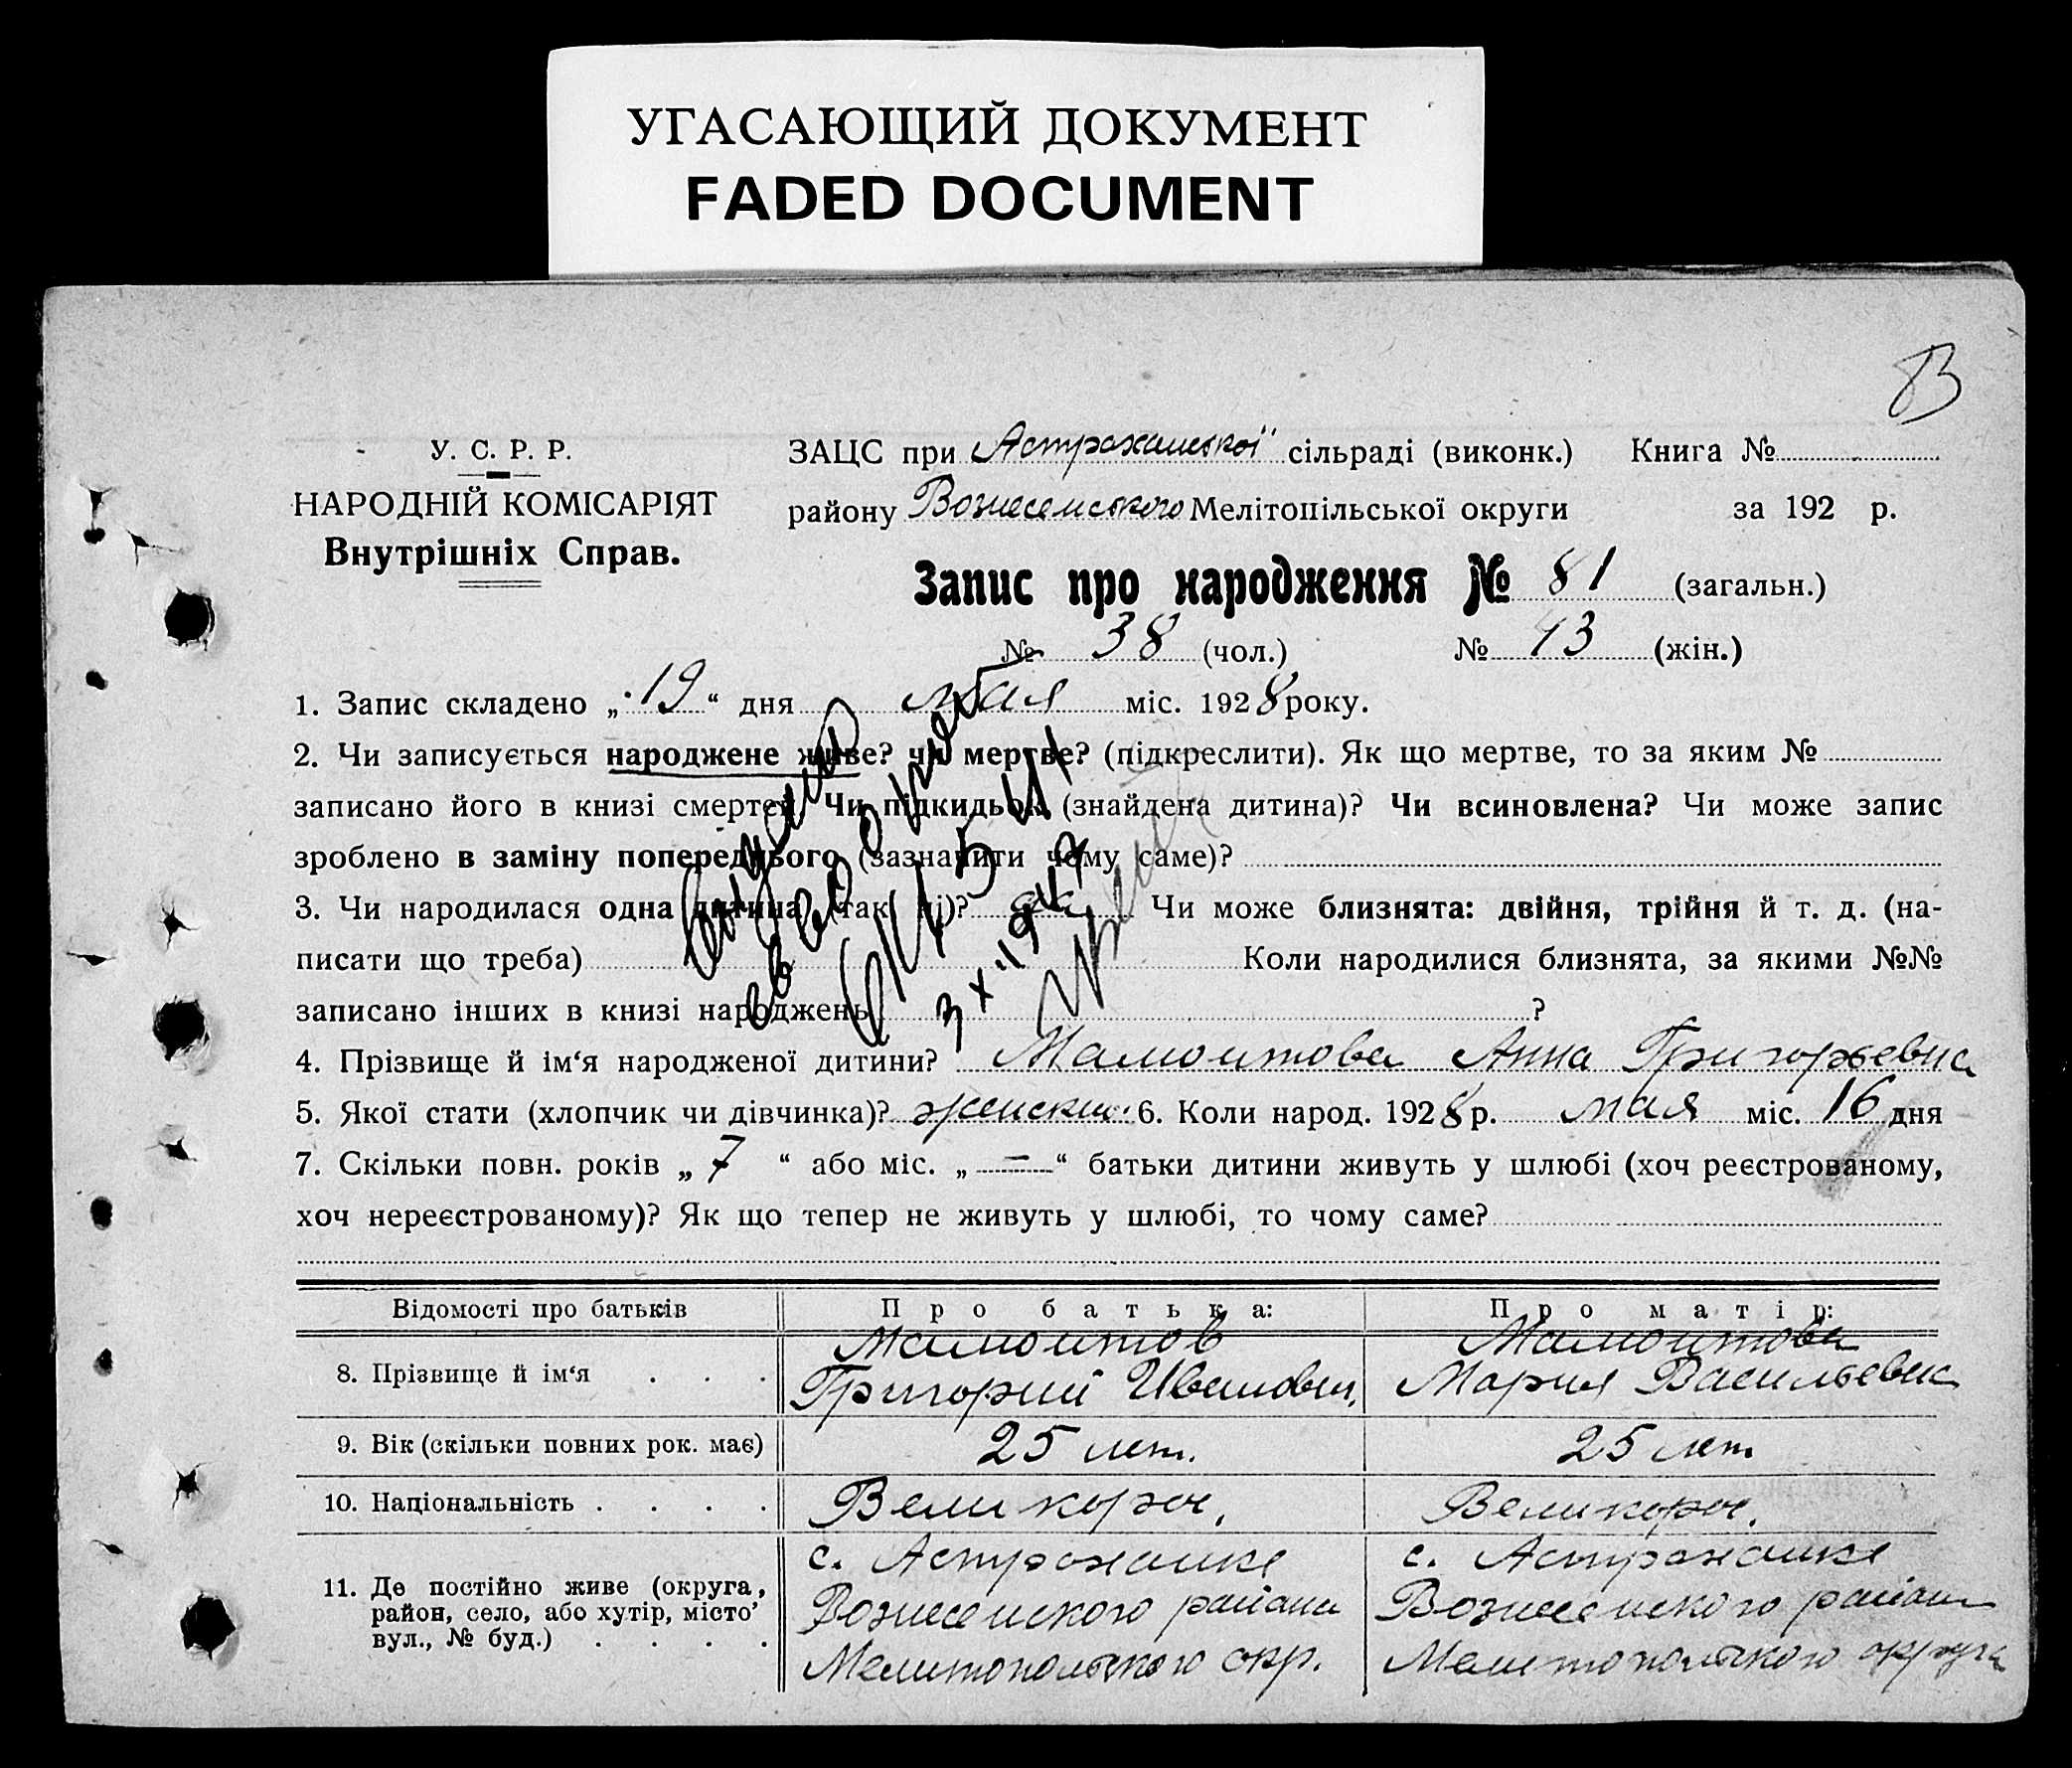 УГАСАЮЩИЙ ДОКУМЕНТ
FADED DOCUMENT
83
У. С. Р. Р.
НАРОДНІЙ КОМІСАРІЯТ
Внутрішніх Справ.
ЗАЦС при Астраханської сільраді (виконк.) Книга №
району Вознесенського Мелітопільської округи за 192 р.
Запис про народження № 81 (загальн.)
№ 38 (чол.) № 43 (жін.)
1. Запис складено „19“ дня мая міс. 1928 року.
2. Чи записується народжене живе? чи мертве? (підкреслити). Як що мертве, то за яким №
записано його в книзі смертей. Чи підкидьок (знайдена дитина)? Чи всиновлена? Чи може запис
зроблено в заміну попереднього (зазначити чому саме)?
3. Чи народилася одна дитина (так, ні)? да Чи може близнята: двійня, трійня й т. д. (на-
писати що треба) Коли народилися близнята, за якими №№
записано інших в книзі народжень ?
4. Прізвище й ім‘я народженої дитини? Мамонтова Анна Григорьевна
5. Якої стати (хлопчик чи дівчинка)? женски. 6. Коли народ. 1928 р. мая міс. 16 дня
7. Скільки повн. років „ 7 “ або міс. „ — “ батьки дитини живуть у шлюбі (хоч реєстрованому,
хоч нереєстрованому)? Як що тепер не живуть у шлюбі, то чому саме?
Відомості про батьків Про батька: Про матір:
8. Прізвище й ім‘я . . . Мамонтов Григорий Иванович. Мамонтова Мария Васильевна
9. Вік (скільки повних рок. має) 25 лет. 25 лет
10. Національність . . . . Великорос. Великорос.
11. Де постійно живе (округа, район, село, або хутір, місто, вул., № буд.) . . . . с. Астраханке Вознесенского района Мелитопольского окр. с. Астраханке Вознесенского района Мелитопольского округа